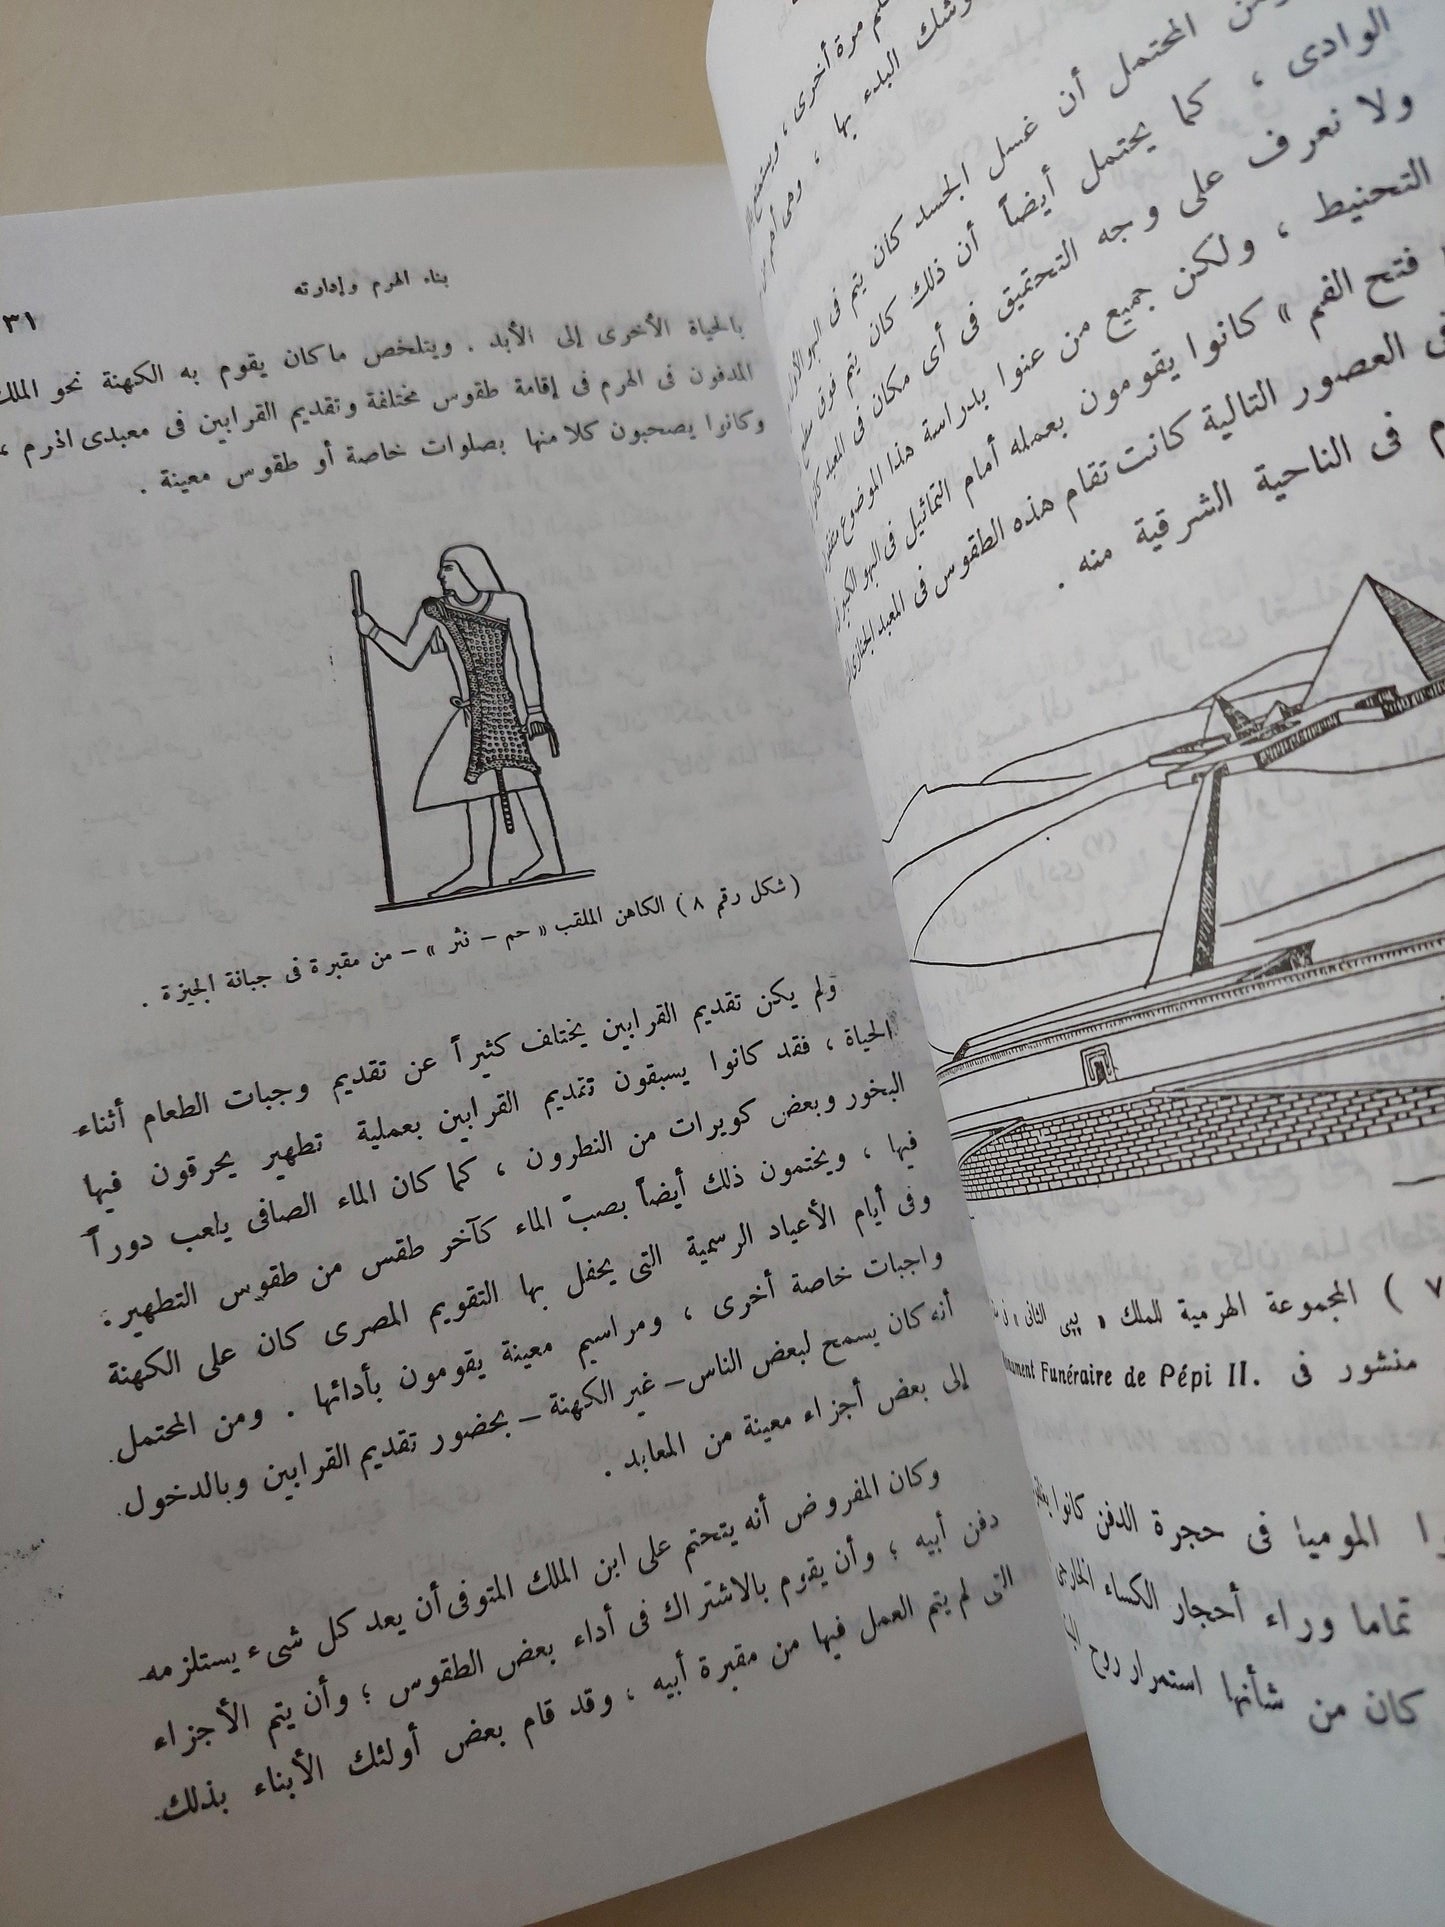 م مرة أخرى ، ويستطيع
وشك البدء بها ، وهى أهم
من المحتمل أن غسل الجسد كان يتم فى البهو الأول
الوادى ، كما يحتمل أيضاً أن ذلك كان يتم فوق سطح
ولا نعرف على وجه التحقيق فى أى مكان فى المعبد كان
التحنيط ، ولكن جميع من عنوا بدراسة هذا الموضوع متفقون
فتح الفم » كانوا يقومون بعمله أمام التماثيل فى البهو الكبير
فى العصور التالية كانت تقام هذه الطقوس فى المعبد الجنازى
م فى الناحية الشرقية منه .
٧ ) المجموعة الهرمية للملك « پيپى الثانى »
منشور فى Monument Funéraire de Pépi II.
وا المومياء فى حجرة الدفن كانوا
تماما وراء أحجار الكساء الخارجى
كان من شأنها استمرار روح
بناء الهرم وإدارته
٣١
بالحياة الأخرى إلى الأبد . ويتلخص ما كان يقوم به الكهنة نحو الملك
المدفون فى الهرم فى إقامة طقوس مختلفة وتقديم القرابين فى معبدى اذرم ،
وكانوا يصحبون كلا منها بصلوات خاصة أو طقوس معينة .
( شكل رقم ٨ ) الكاهن الملقب « حم – نثر » – من مقبرة فى جبانة الجيزة .
ولم يكن تقديم القرابين يختلف كثيراً عن تقديم وجبات الطعام أثناء
الحياة ، فقد كانوا يسبقون تقديم القرابين بعملية تطهير يحرقون فيها
البخور وبعض كويرات من النطرون ، كما كان الماء الصافى يلعب دوراً
فيها ، ويختمون ذلك أيضاً بصبّ الماء كآخر طقس من طقوس التطهير .
وفى أيام الأعياد الرسمية التى يحفل بها التقويم المصرى كان على الكهنة
واجبات خاصة أخرى ، ومراسيم معينة يقومون بأدائها . ومن المحتمل
أنه كان يسمح لبعض الناس – غير الكهنة – بحضور تقديم القرابين وبالدخول
إلى بعض أجزاء معينة من المعابد .
وكان المفروض أنه يتحتم على ابن الملك المتوفى أن يعد كل شىء يستلزمه
دفن أبيه ؛ وأن يقوم بالاشتراك فى أداء بعض الطقوس ؛ وأن يتم الأجزاء
التى لم يتم العمل فيها من مقبرة أبيه ، وقد قام بعض أولئك الأبناء بذلك